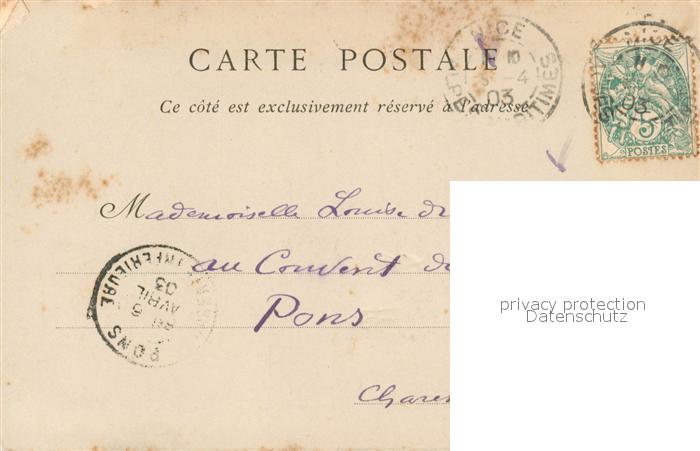 NICE
5 -4
03
ALPES MARITIMES
CARTE POSTALE
Ce côté est exclusivement réservé à l'adresse
NICE
03
5
POSTES
Mademoiselle Louise de
au Convent de
Pons
Charen
PONS
6
AVRIL
03
INFERIEURE
privacy protection
Datenschutz